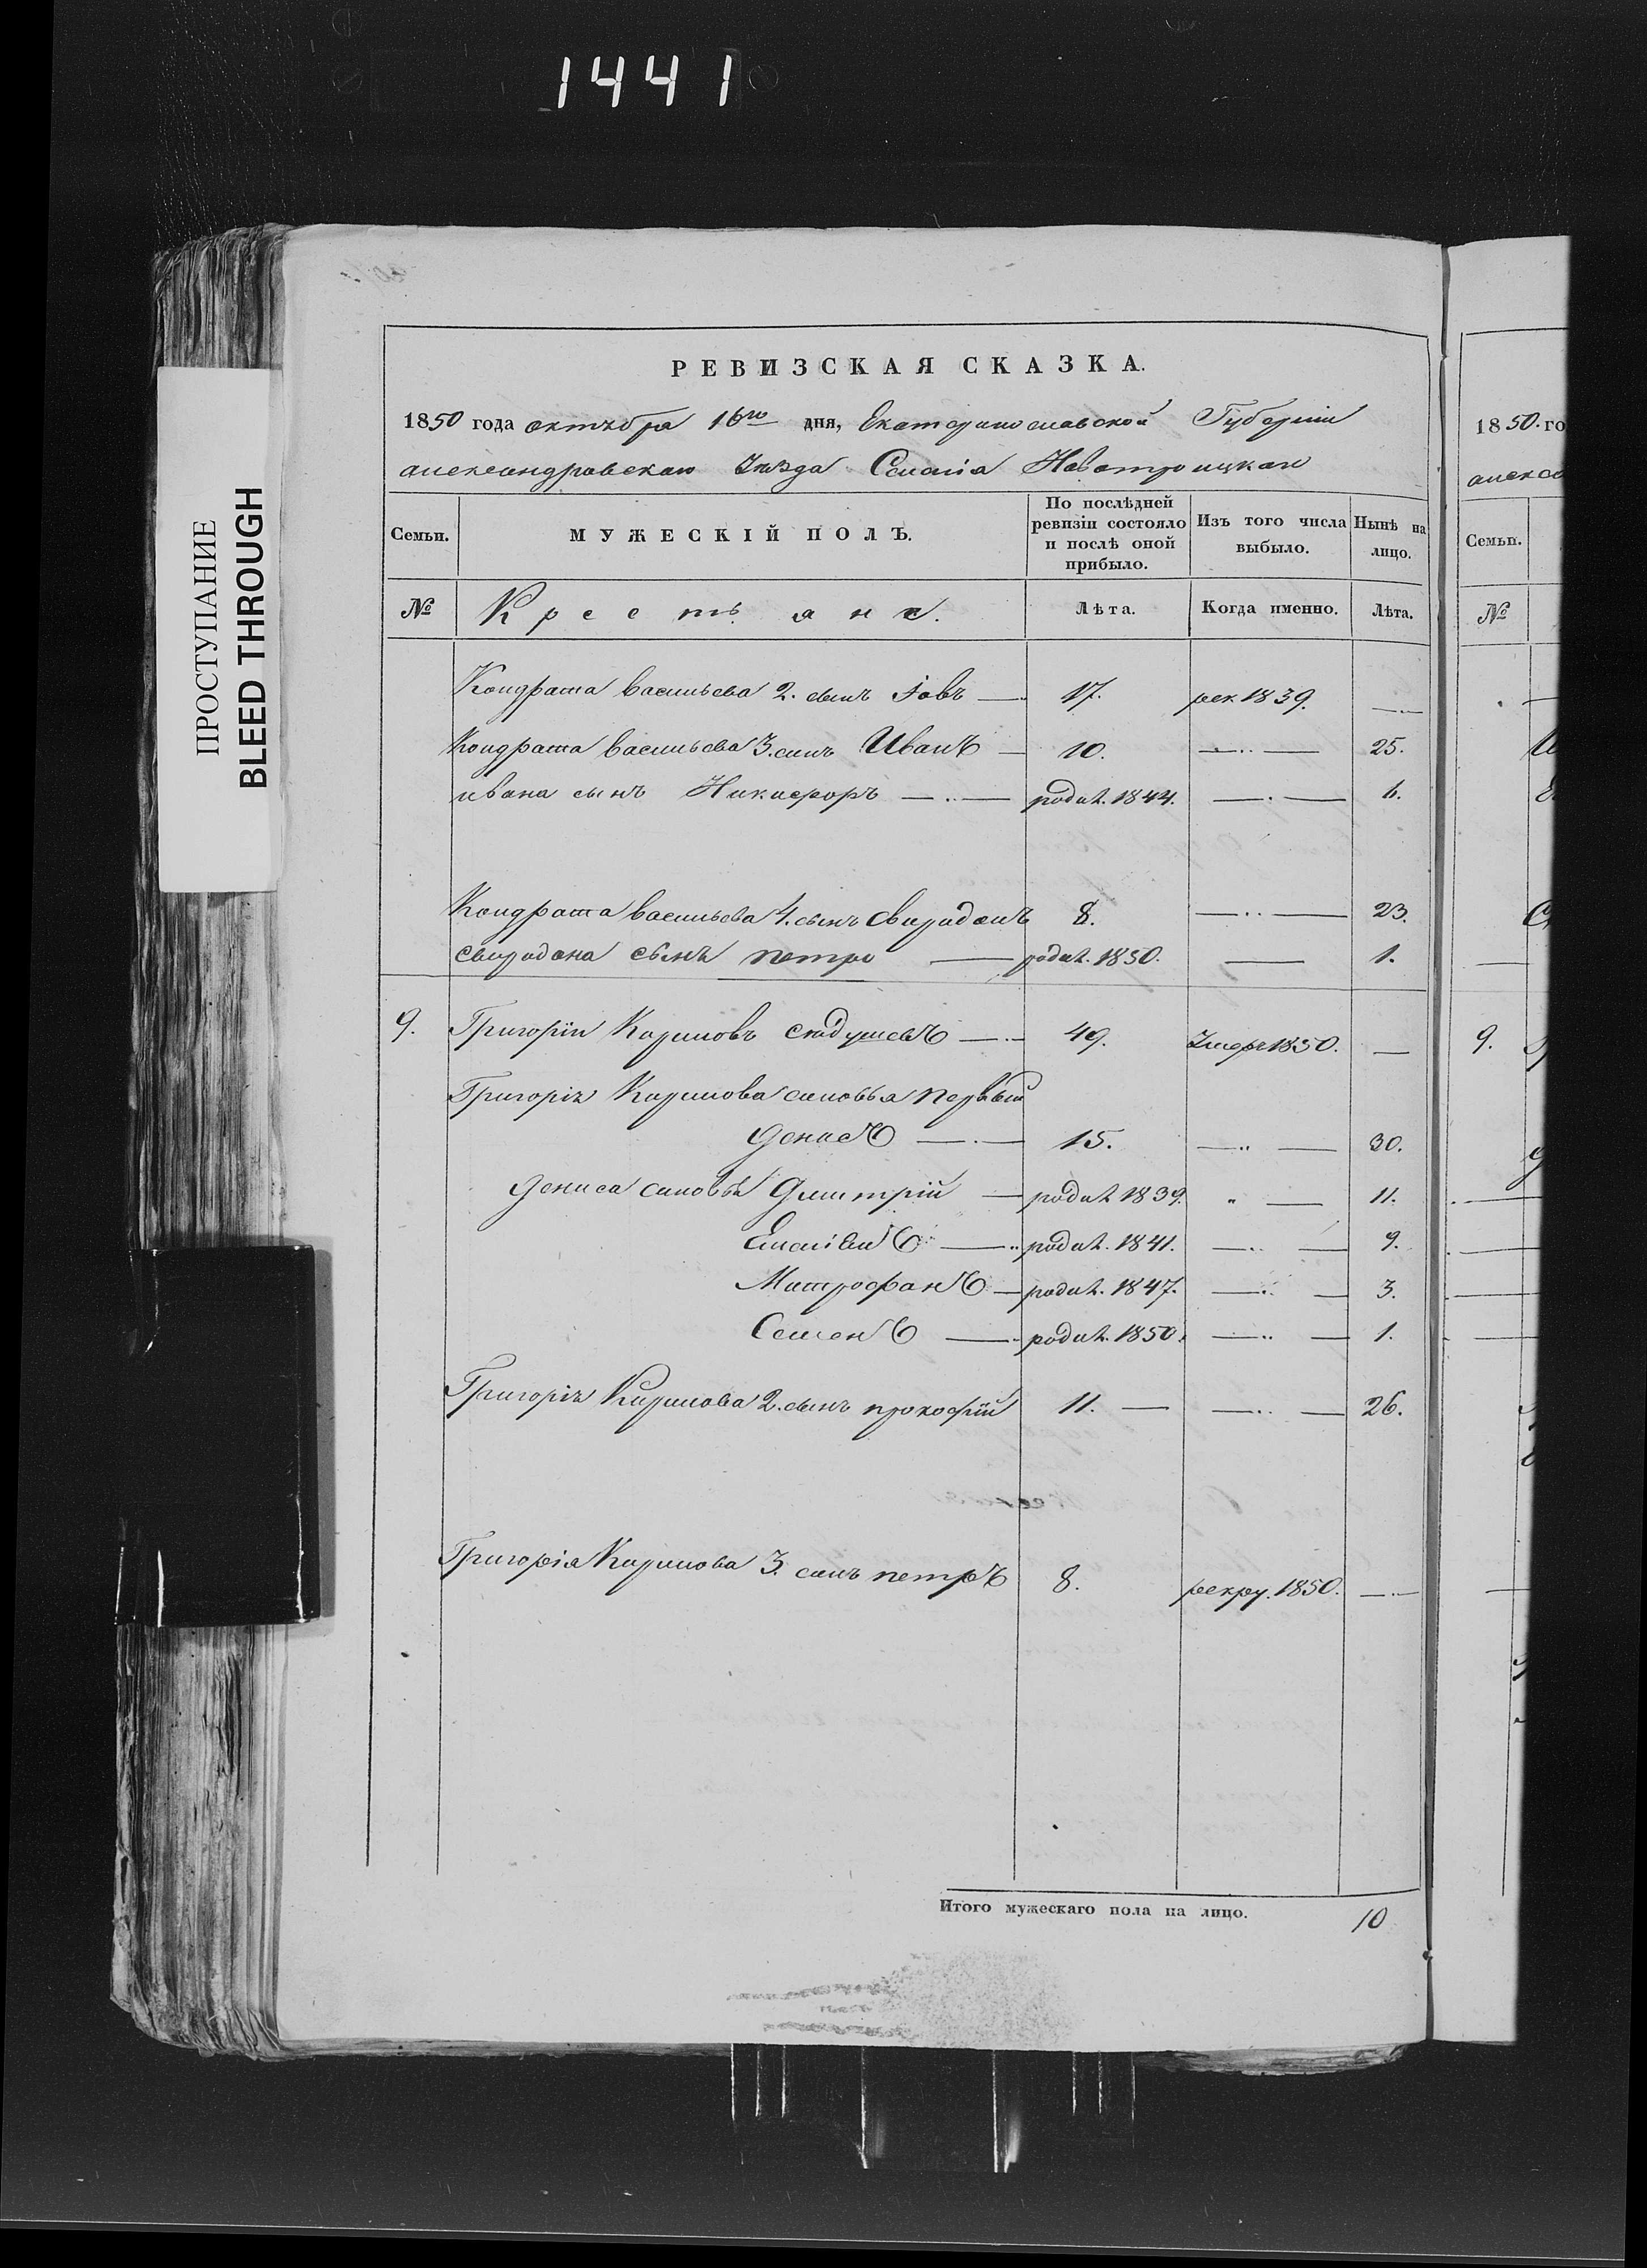 1441
ПРОСТУПАНИЕ
BLEED THROUGH
РЕВИЗСКАЯ СКАЗКА.
1850 года октября 16го дня, Екатеринославской Губерніи
александровскаго Уезда Селенія Новотроицкаго
Семьи. МУЖЕСКІЙ ПОЛЪ. По послѣдней ревизіи состояло и послѣ оной прибыло. Изъ того числа выбыло. Нынѣ на лицо.
№ Крестьяне. Лѣта. Когда именно. Лѣта.
Кондрата васильева 2. сынъ Іовъ — 17. рек. 1839. —
Кондрата васильева 3. сынъ Иванъ — 10. — 25.
ивана сынъ Никифоръ — родил. 1844. — 6.
Кондрата васильева 4. сынъ Свиридонъ 8. — 23.
Свиридона сынъ петро — родил. 1850. — 1.
9. Григорій Кириловъ — 49. Умеръ 1850. —
Григорія Кирилова синовья первый
Денисъ — 15. — 30.
Дениса синовья Дмитрій — родил. 1839. — 11.
— родил. 1841. — 9.
Митрофанъ — родил. 1847. — 3.
Семенъ — родил. 1850. — 1.
Григорія Кирилова 2. сынъ прокофій 11. — — 26.
Григорія Кирилова 3. синъ петръ 8. рекру. 1850. —
Итого мужескаго пола на лицо. 10
1850. го
алекса
Семьи.
№
9.